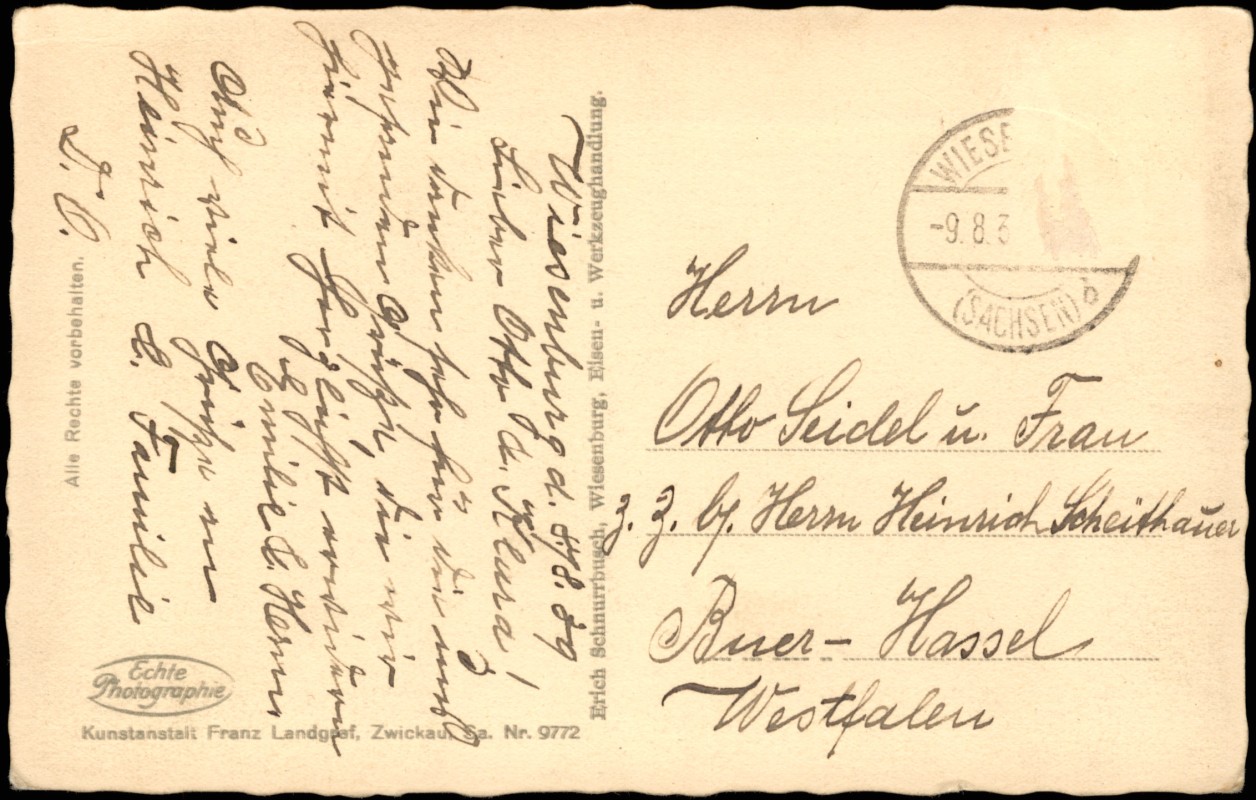 Wiesenburg d. 8/8. 39
Lieber Otto u. Klara!
Wir danken sehr für die uns
gesandten Grüße, die wir
hiermit herzlichst erwidern
Emilie & Herm
Auch viele Grüße v
Heinrich & Familie
D. O.
Erich Schnurrbusch, Wiesenburg, Eisen- u. Werkzeughandlung.
Alle Rechte vorbehalten.
Echte
Photographie
Kunstanstalt Franz Landgraf, Zwickau, Sa. Nr. 9772
WIESE
-9.8.3
(SACHSEN) b
Herrn
Otto Seidel u. Frau
z. Z. b/. Herrn Heinrich Scheithauer
Buer-Hassel
Westfalen